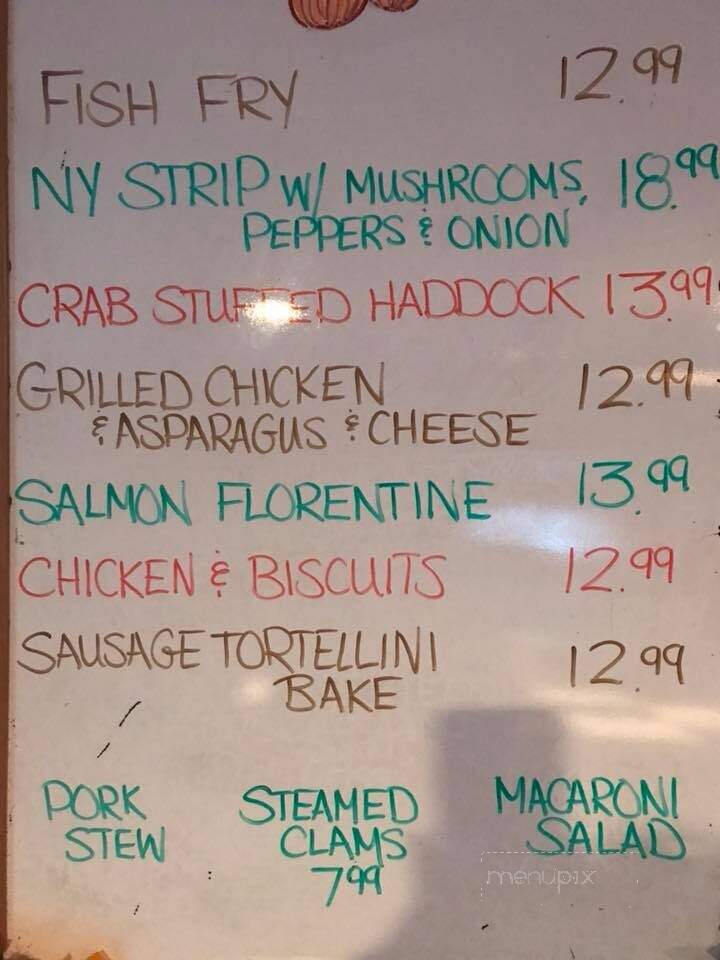 FISH FRY 12.99
NY STRIP W/ MUSHROOMS, 18.99
PEPPERS & ONION
CRAB STUFFED HADDOCK 13.99
GRILLED CHICKEN 12.99
& ASPARAGUS & CHEESE
SALMON FLORENTINE 13.99
CHICKEN & BISCUITS 12.99
SAUSAGE TORTELLINI 12.99
BAKE
PORK
STEW
STEAMED
CLAMS
7.99
MACARONI
SALAD
menupix